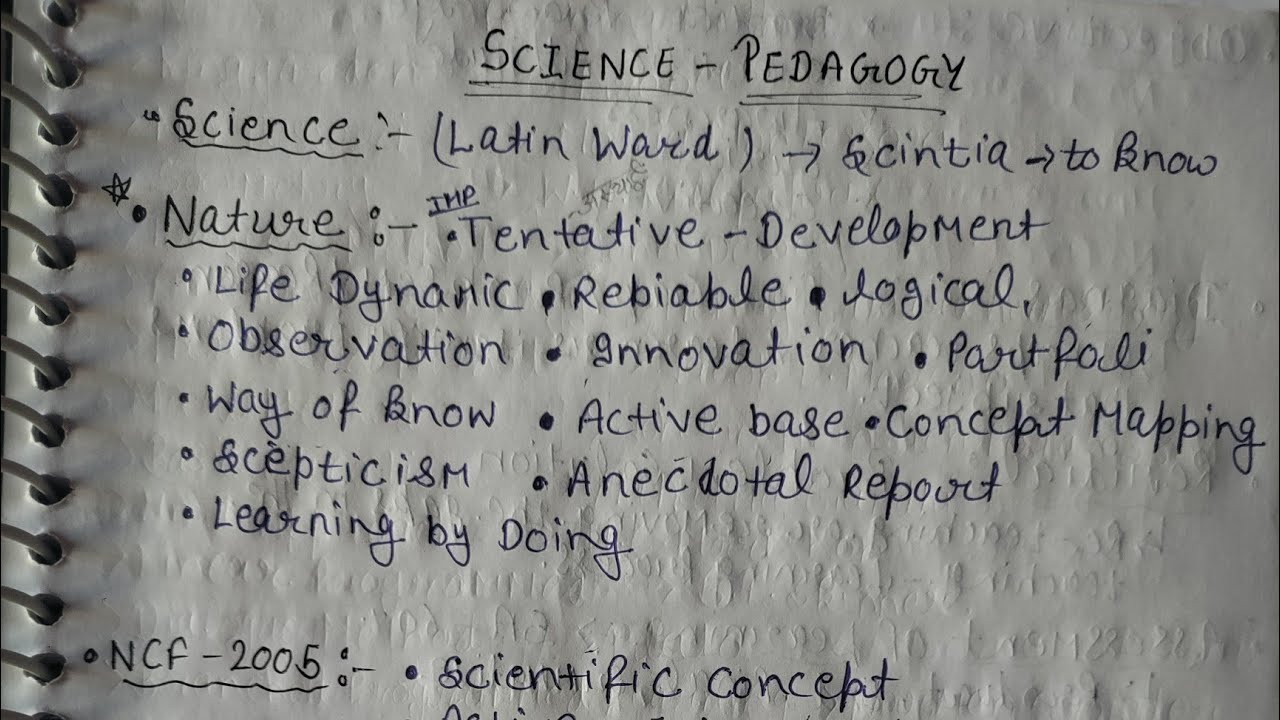 SCIENCE - PEDAGOGY
Science :- (Latin Word) → Scintia → to know
☆ • Nature :- IMP • Tentative - Development
• Life Dynamic • Rebiable • logical,
• Observation • Innovation • Partfoli
• Way of know • Active base • Concept Mapping
• Scepticism • Anecdotal Report
• Learning by Doing
• NCF - 2005 :- • Scientific Concept